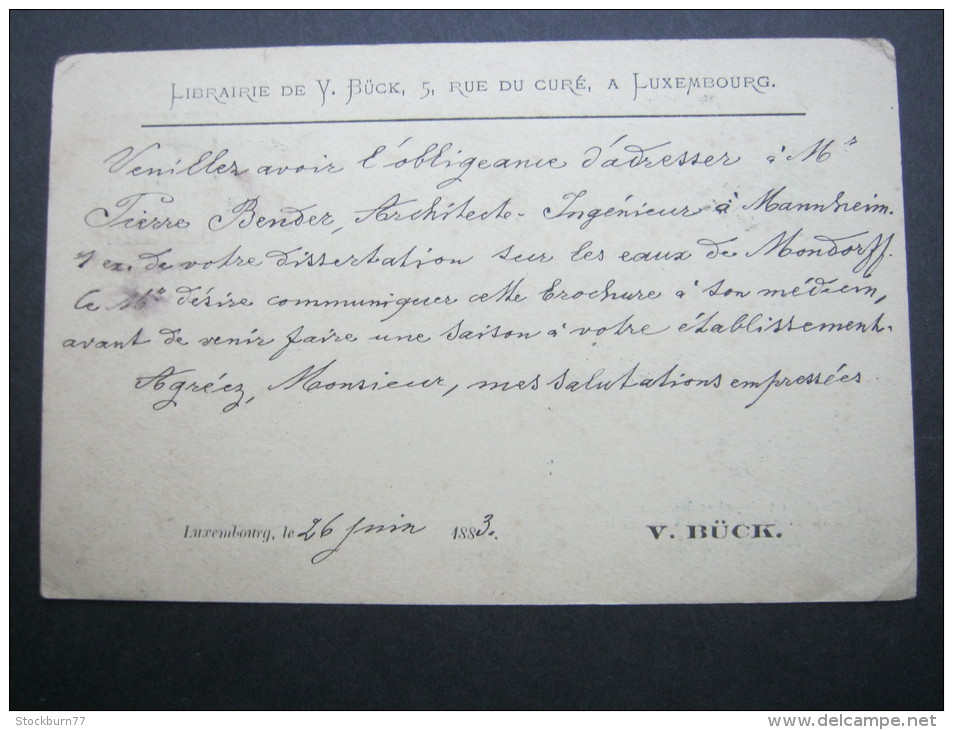 LIBRAIRIE DE V. BÜCK, 5, RUE DU CURÉ, A LUXEMBOURG.
Veuillez avoir l'obligeance d'adresser à Mr
Pierre Bender, Architecte-Ingénieur à Mannheim.
1 ex. de votre dissertation sur les eaux de Mondorff.
Ce Mr désire communiquer cette brochure à son médecin,
avant de venir faire une saison à votre établissement.
Agréez, Monsieur, mes salutations empressées
Luxembourg, le 26 juin 1883.
V. BÜCK.
Stockburn77
www.delcampe.net